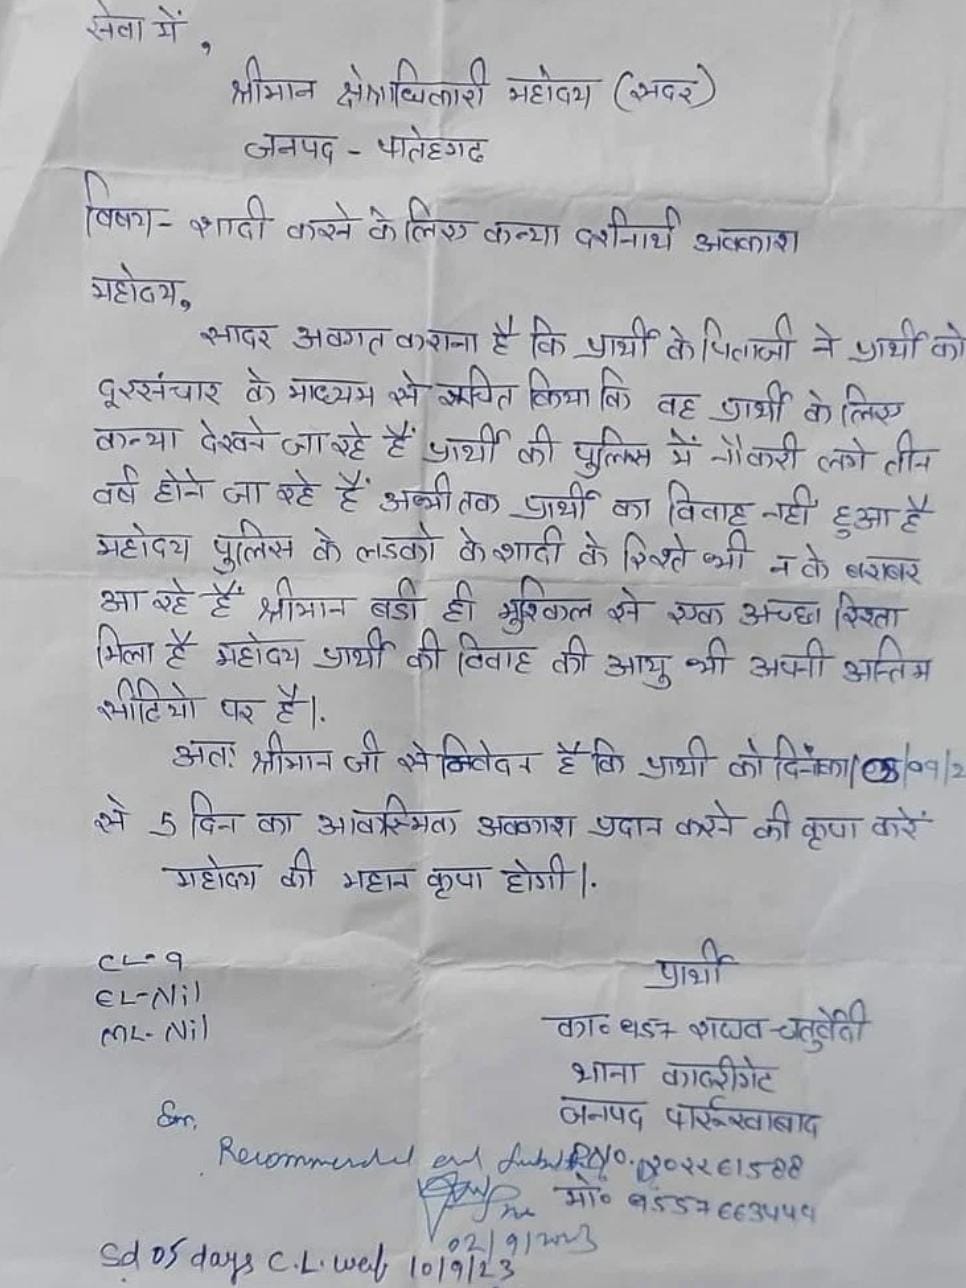 सेवा में,
श्रीमान क्षेत्राधिकारी महोदय (सदर)
जनपद - फतेहगढ
विषय - शादी करने के लिए कन्या दर्शनार्थ अवकाश
महोदय,
सादर अवगत कराना है कि प्रार्थी के पिताजी ने प्रार्थी को
दूरसंचार के माध्यम से सूचित किया कि वह प्रार्थी के लिए
कन्या देखने जा रहे हैं प्रार्थी की पुलिस में नौकरी लगे तीन
वर्ष होने जा रहे हैं अभी तक प्रार्थी का विवाह नहीं हुआ है
महोदय पुलिस के लडको के शादी के रिश्ते भी न के बराबर
आ रहे हैं श्रीमान बडी ही मुश्किल से एक अच्छा रिश्ता
मिला है महोदय प्रार्थी की विवाह की आयु भी अपनी अन्तिम
सीढियो पर है।.
अतः श्रीमान जी से निवेदन है कि प्रार्थी को
से 5 दिन का आकस्मिक अवकाश प्रदान करने की कृपा करें
महोदय की महान कृपा होगी।.
CL-9
EL-Nil
ML-Nil
प्रार्थी
का० राघव चतुर्वेदी
थाना कादरीगेट
जनपद फर्रूखाबाद
Sir,
Recommended and
मो०
02/9/2023
Sd 05 days C.L. wef 10/9/23